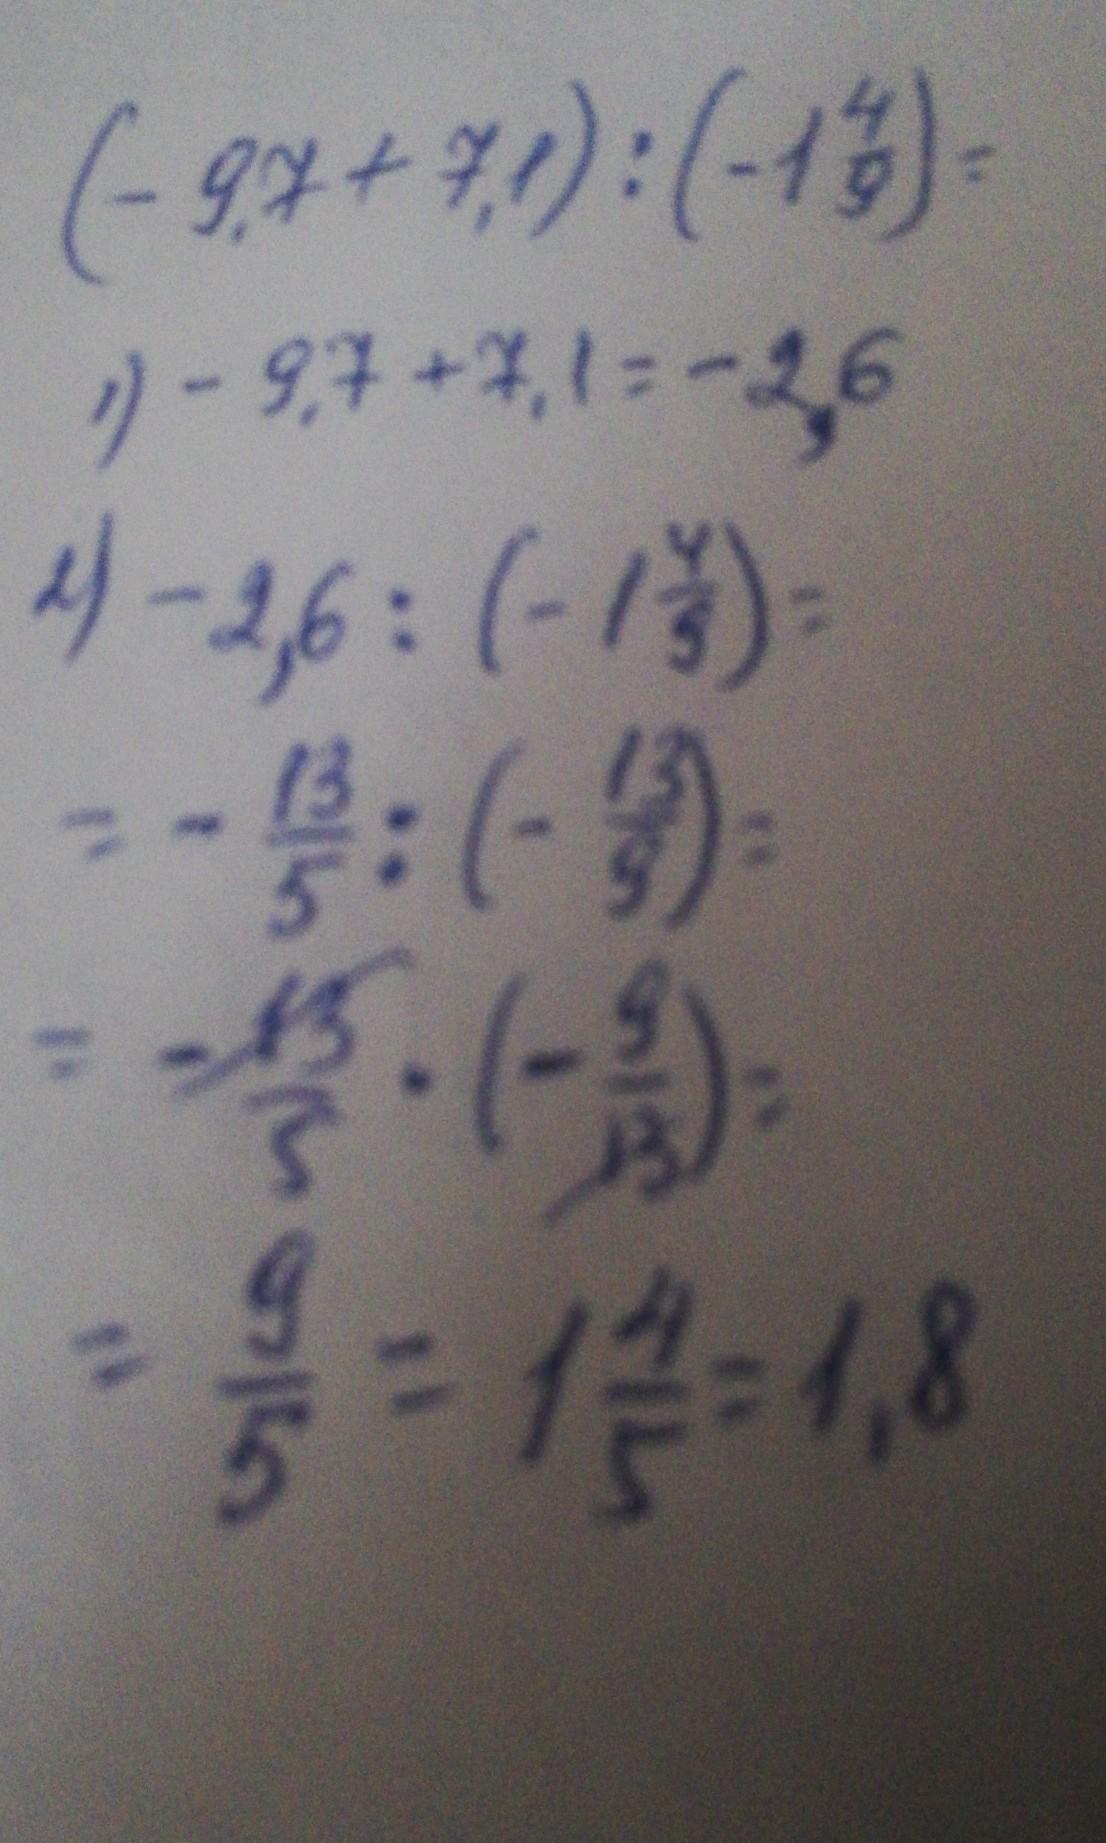 (- 9,7 + 7,1) : (-1 4/9) =
1) - 9,7 + 7,1 = - 2,6
2) - 2,6 : (- 1 4/9) =
= - 13/5 : (- 13/9) =
= - 13/5 · (- 9/13) =
= 9/5 = 1 4/5 = 1,8